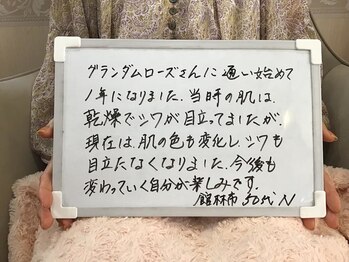 グランダムローズさんに通い始めて
1年になりました。当時の肌は、
乾燥でシワが目立ってましたが、
現在は、肌の色も変化し、シワも
目立たなくなりました。今後も
変わっていく自分が楽しみです。
館林市 50代 N